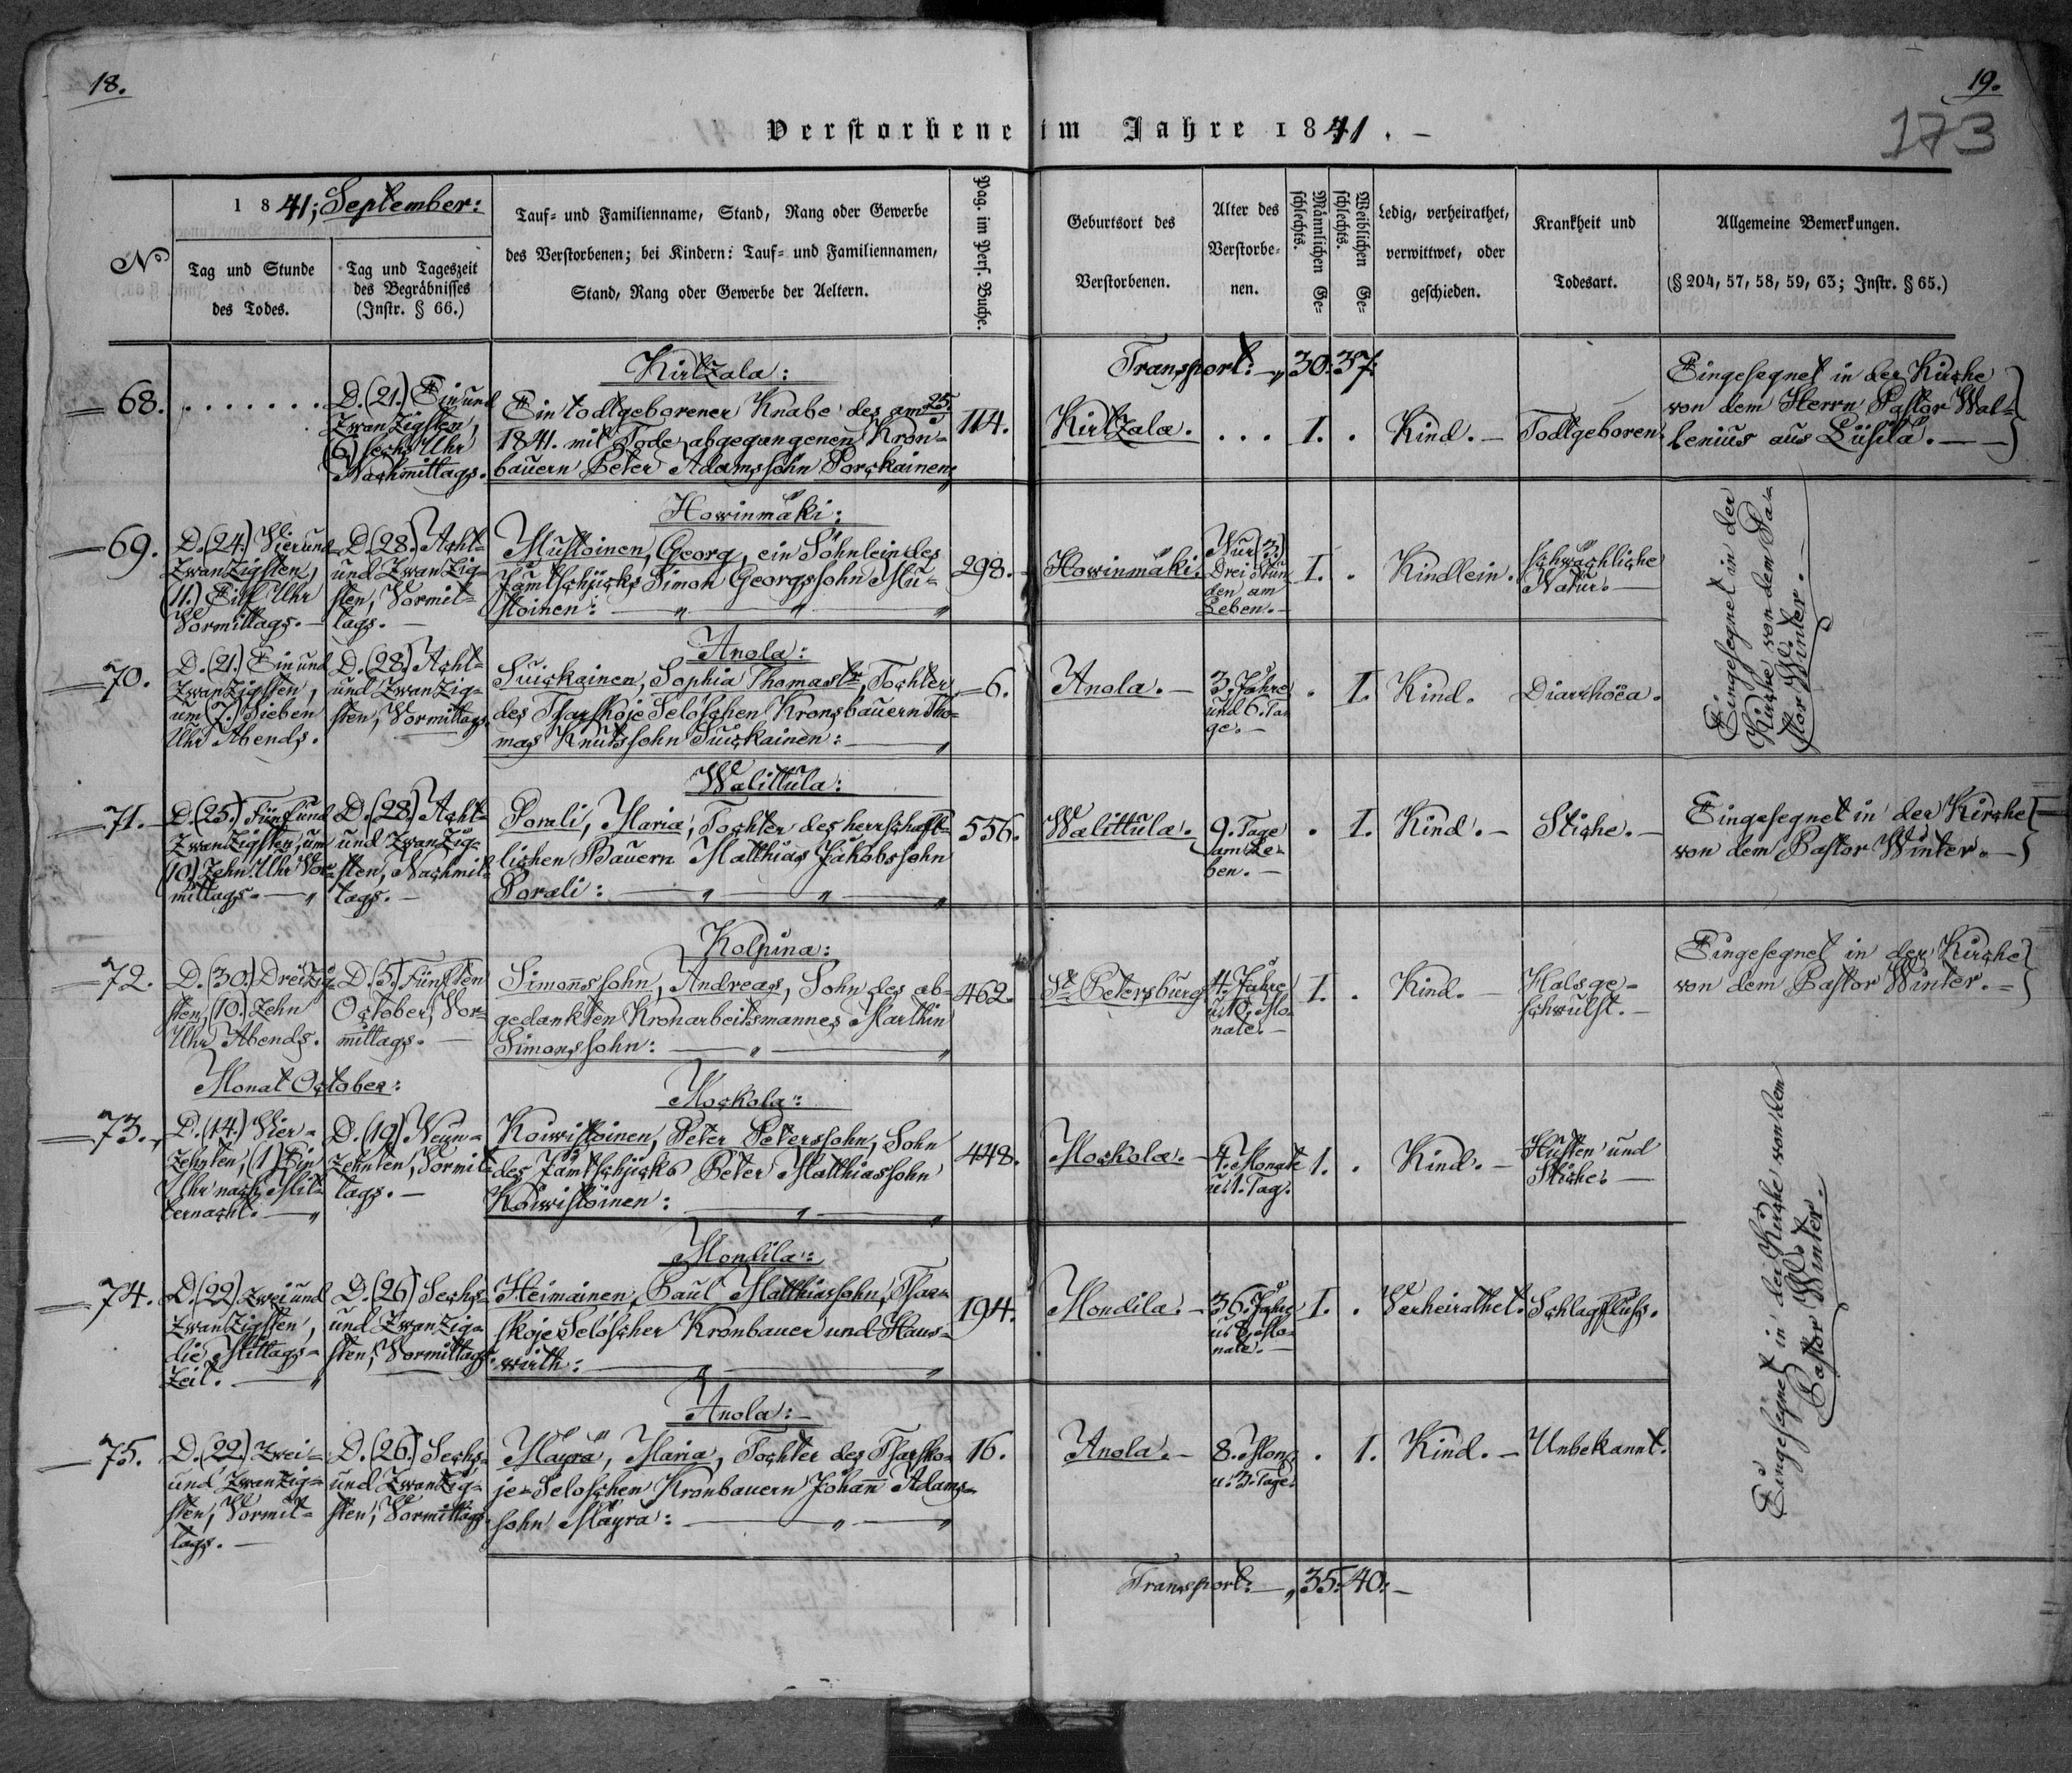 18.
19.
173
Verstorbene im Jahre 1841. –
1841; September:
No
Tag und Stunde
des Todes.
Tag und Tageszeit
des Begräbnisses
(Instr. § 66.)
Tauf- und Familienname, Stand, Rang oder Gewerbe
des Verstorbenen; bei Kindern: Tauf- und Familiennamen,
Stand, Rang oder Gewerbe der Aeltern.
Pag. im Pers. Buche.
Geburtsort des
Verstorbenen.
Alter des
Verstorbe-
nen.
Männlichen Ge-
schlechts.
Weiblichen Ge-
schlechts.
Ledig, verheirathet,
verwittwet, oder
geschieden.
Krankheit und
Todesart.
Allgemeine Bemerkungen.
(§ 204, 57, 58, 59, 63; Instr. § 65.)
Transport: – „ 30. 37.
Kirtzala:
68. . . . . . . .
D. (21.) Ein und
Zwanzigsten,
(6) sechs Uhr
Nachmittags.
Ein todtgeborener Knabe des am 25.
1841. mit Tode abgegangenen Kron-
bauern Peter Adamssohn Porckainen,
114.
Kirtzala.
. . .
1.
.
Kind. –
Todtgeboren.
Eingesegnet in der Kirche
von dem Herrn Pastor Wal-
lenius aus Liisilä. – –
Howinmäki:
69.
D. (24.) Vier und
Zwanzigsten,
(11.) Eilf Uhr
Vormittags. –
D. (28.) Acht-
und Zwanzig-
sten, Vormit-
tags. –
Mustoinen, Georg, ein Söhnlein des
Jämtschicks Simon Georgssohn Mu-
stoinen: – „ – „ – „
298.
Howinmäki.
Nur (3.)
Drei Stun
den am
Leben. –
I.
.
Kindlein.
schwächliche
Natur. –
Eingesegnet in der
Kirche von dem Pa-
stor Winter. –
Anola:
70.
D. (21.) Ein und
Zwanzigsten,
um (7.) Sieben
Uhr Abends.
D. (28.) Acht-
und Zwanzig-
sten, Vormittags.
Suickainen, Sophia Thomastr, Tochter
des Tsarskoje Seloschen Kronsbauern Tho-
mas Knutssohn Suickainen: – „
6.
Anola. –
3. Jahre
und 6. Ta
ge. –
.
I.
Kind.
Diarrhöea.
Walittula:
71.
D. (25.) Fünf und
Zwanzigsten, um
(10) Zehn Uhr Vor-
mittags. – „
D. (28.) Acht-
und Zwanzig-
sten, Nachmit-
tags. –
Porali, Maria, Tochter des herrschaft-
lichen Bauern Matthias Jakobssohn
Porali: – „ – „ – „
556.
Walittula.
9. Tage
am Le-
ben. –
.
I.
Kind. –
Stiche. –
Eingesegnet in der Kirche
von dem Pastor Winter. –
Kolpina:
72.
D. (30.) Dreizig-
sten, (10.) Zehn
Uhr Abends.
D. (5.) Fünften
October, Vor-
mittags. –
Simonssohn, Andreas, Sohn des ab-
gedankten Kronarbeitsmannes Marthin
Simonssohn: – „ – „
462.
St. Petersburg
4. Jahre
u. 10. Mo-
nate. –
I.
.
Kind. –
Halsge-
schwulst. –
Eingesegnet in der Kirche
von dem Pastor Winter. –
Monat October:
Mockola:
73.
D. (14.) Vier-
zehnten, (1.) Ein
Uhr nach Mit-
ternacht. – „
D. (19.) Neun-
zehnten, Vormit-
tags. –
Koiwistoinen, Peter Peterssohn, Sohn
des Jämtschicks Peter Matthiassohn
Koiwistoinen: – „ – „
448.
Mockola. –
4. Monate
u. 1. Tag.
1.
.
Kind. –
Husten und
Stiche. –
Eingesegnet in der Kirche von dem
Pastor Winter. –
Mondila:
74.
D. (22.) Zwei und
Zwanzigsten,
die Mittags-
Zeit. – „
D. (26) Sechs-
und Zwanzig-
sten, Vormittags.
Heimainen, Paul Matthiassohn, Tsar-
skoje Seloscher Kronbauer und Haus-
wirth: – „ – „
194.
Mondila. –
36. Jahre
u. 8. Mo-
nate. –
I.
.
Verheirathet.
Schlagfluss.
Anola: –
75.
D. (22.) Zwei-
und Zwanzig-
sten, Vormit-
tags. –
D. (26.) Sechs-
und Zwanzig-
sten, Vormittags.
Mäyrä, Maria, Tochter des Tsarsko-
je-Seloschen Kronbauern Johann Adams-
sohn Mäyrä: – „ – „
16.
Anola. –
8. Mon.
u. 3. Tage.
.
1.
Kind. –
Unbekannt.
Transport: – „ 35. 40. –